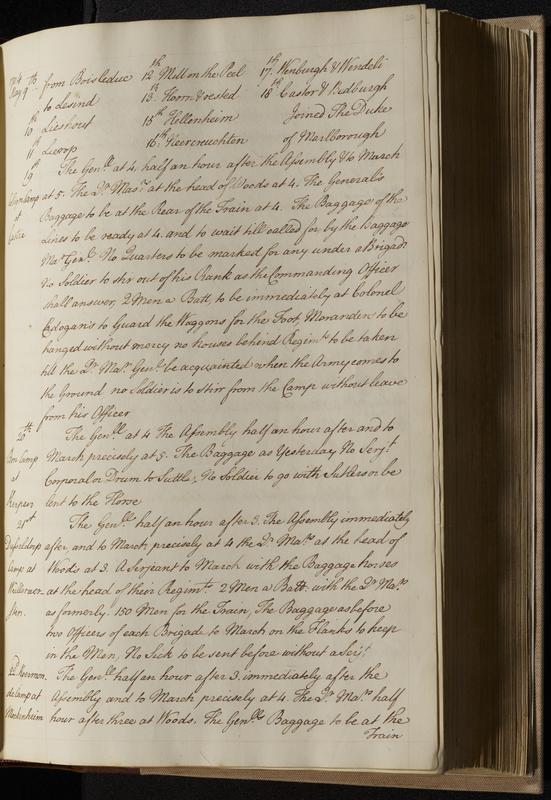 1704
May 9th from Boisleduc 12th Mill on the Peel 17th Wenburgh & Wendeli
to Lesind 13th Horn & vested 18th Castor & Bedburgh
10th Lieshout 15th Hellenheim Joined The Duke
11th Leerop 16th Neercruchten of Marlborough
19th The Genll at 4, half an hour after the Assembly & to March
Camp at 5. The Qr. Masrs at the head of Woods at 4. The General's
at Baggage to be at the Rear of the Train at 4. The Baggage of the
Castre Lines to be ready at 4. and to wait till called for by the Baggage
Mar Genl. No Quarters to be marked for any under a Brigadr
No Soldier to stir out of his Rank as the Commanding Officer
shall answer, 2 Men a Batt. to be immediately at Colonel
Cadogan's to Guard the Waggons for the Foot, Moranders to be
hanged without mercy no houses behind Regimts to be taken
till the Qr. Mar. Genl. be acquainted when the Army comes to
the Ground no Soldier is to stirr from the Camp without leave
from his Officer
20th The Genll at 4 The Assembly half an hour after and to
Camp March precisely at 5. The Baggage as Yesterday No Serjt
at Corporal or Drum to Suttle, No Soldier to go with Sutlers or be
Kerpen lent to the Horse
21st The Genll half an hour after 3. The Assembly immediately
after, and to March precisely at 4 the Qr. Mars at the head of
Camp at Woods at 3. A Serjeant to March with the Baggage horses
at the head of their Regimts. 2 Men a Batt: with the Qr. Mars
as formerly. 150 Men for the Train, The Baggage as before
two Officers of each Brigade to March on the Flanks to keep
in the Men, No Sick to be sent before without a Serjt
22d The Genll half an hour after 3. immediately after the
Camp at Assembly and to March precisely at 4. The Qr. Mars half
Meckenheim hour after three at Woods. The Genlls Baggage to be at the
Train